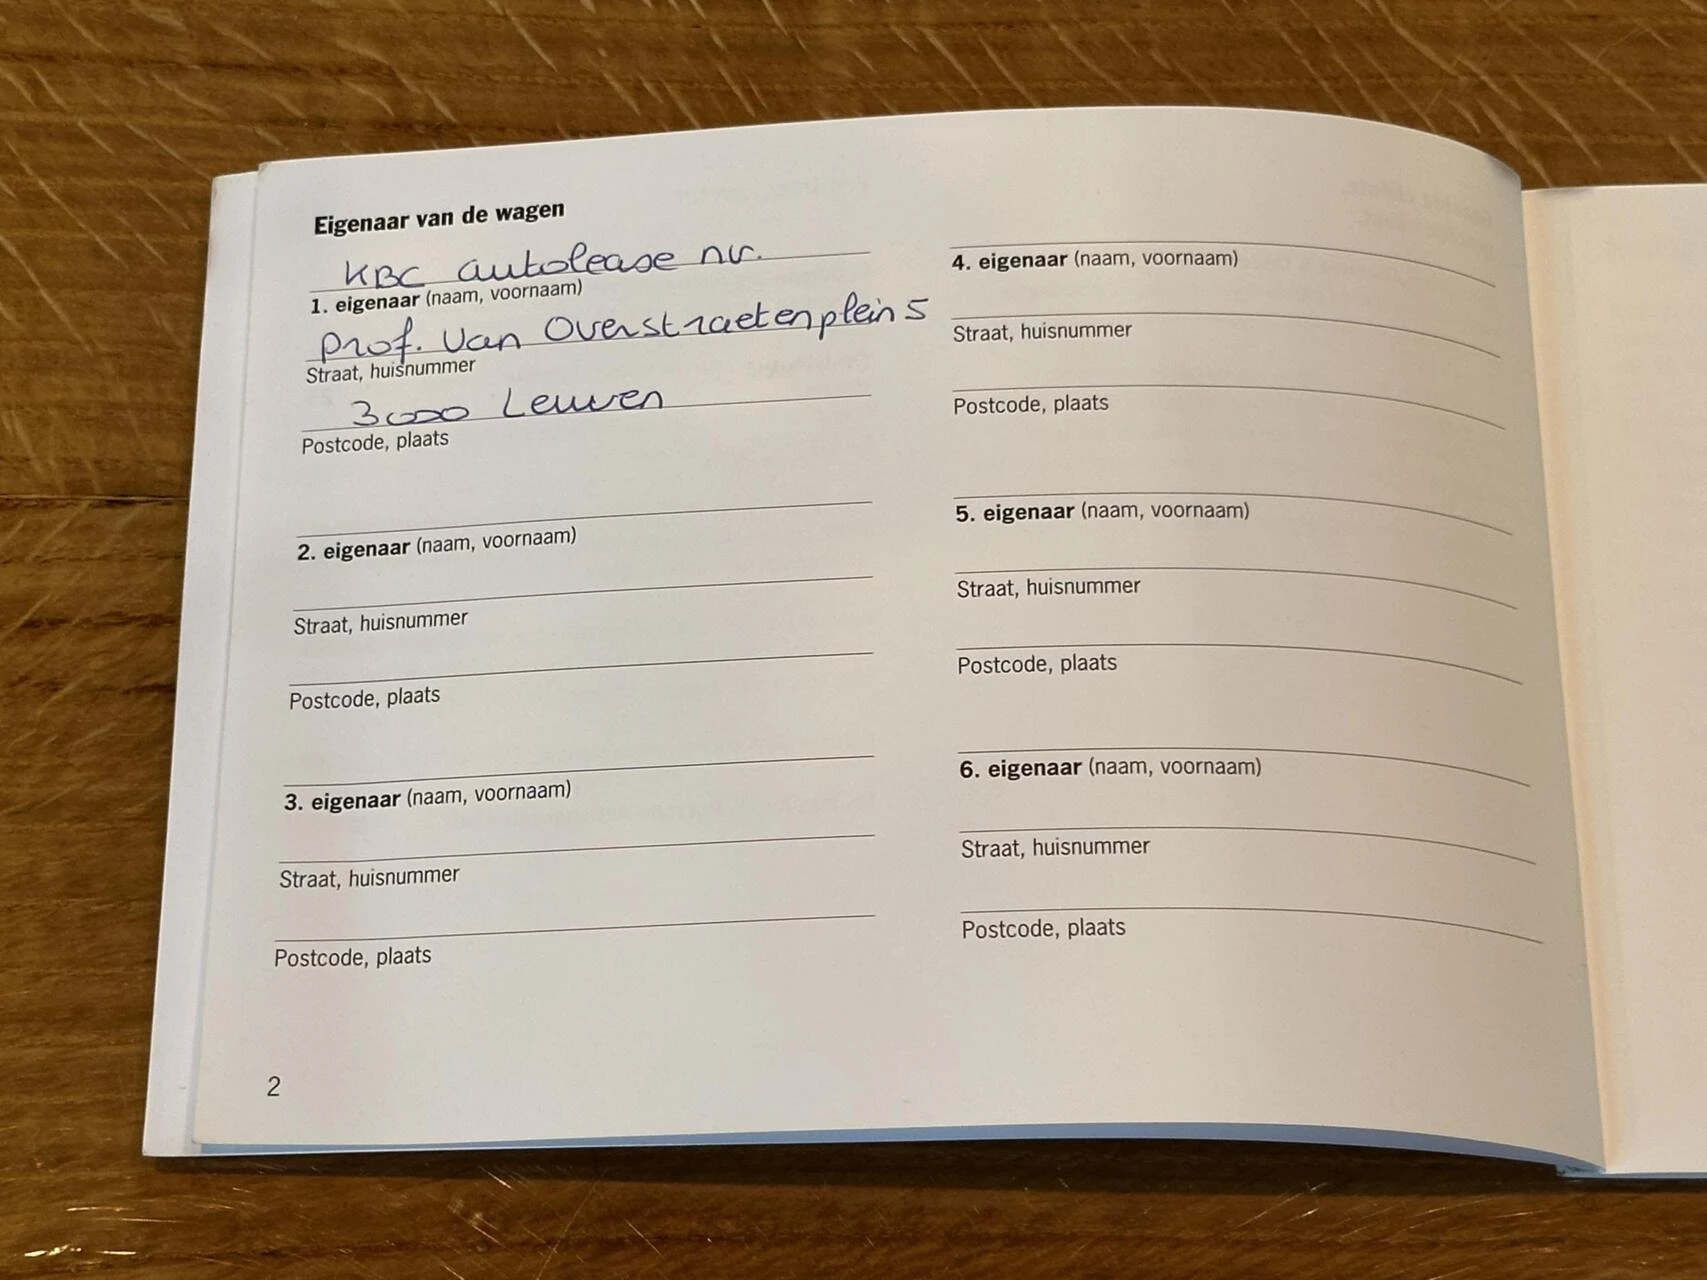 Eigenaar van de wagen
KBC autolease nv.
1. eigenaar (naam, voornaam)
Prof. Van Overstraetenplein 5
Straat, huisnummer
3000 Leuven
Postcode, plaats
2. eigenaar (naam, voornaam)
Straat, huisnummer
Postcode, plaats
3. eigenaar (naam, voornaam)
Straat, huisnummer
Postcode, plaats
4. eigenaar (naam, voornaam)
Straat, huisnummer
Postcode, plaats
5. eigenaar (naam, voornaam)
Straat, huisnummer
Postcode, plaats
6. eigenaar (naam, voornaam)
Straat, huisnummer
Postcode, plaats
2